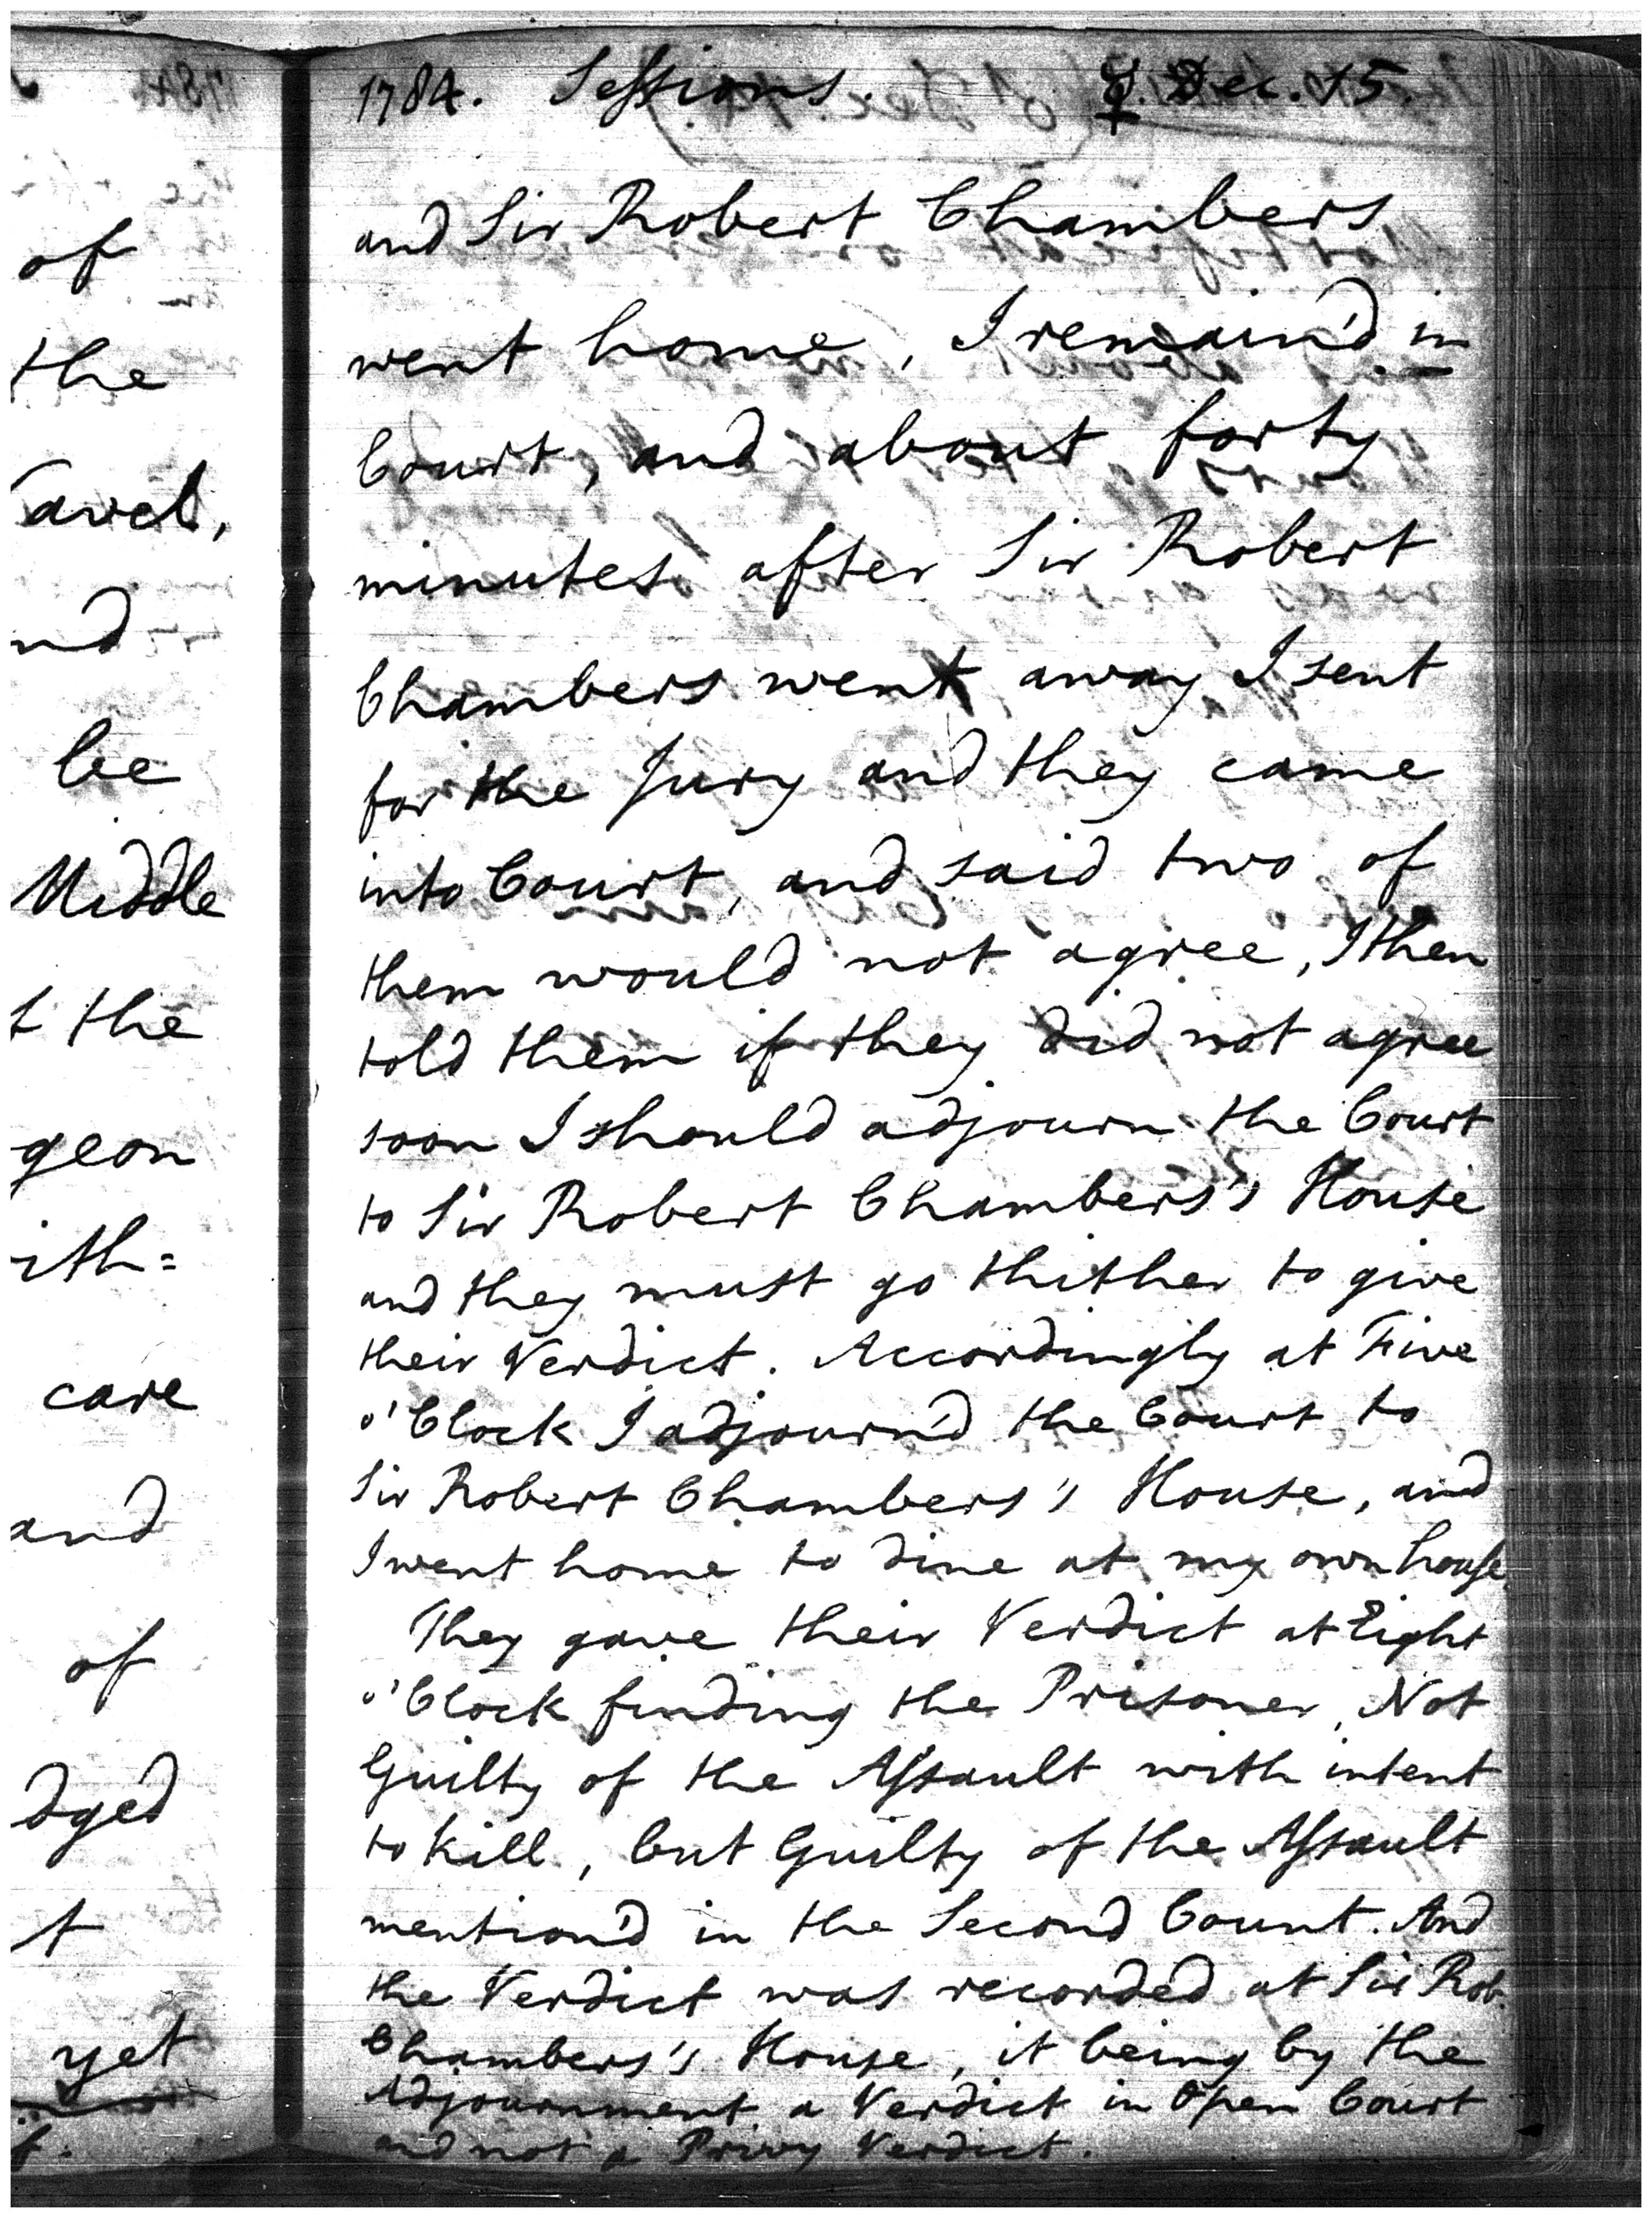 of
the
avel,
nd
be
Middle
t the
geon
ith=
care
and
of
dged
t
yet
1784. Sessions. ☿. Dec. 15.
and Sir Robert Chambers
went home, I remain'd in
Court, and about forty
minutes after Sir Robert
Chambers went away I sent
for the Jury and they came
into Court, and said two of
them would not agree, I then
told them if they did not agree
soon I should adjourn the Court
to Sir Robert Chambers's House
and they must go thither to give
their Verdict. Accordingly at Five
o'Clock I adjourn'd the Court to
Sir Robert Chambers's House, and
I went home to dine at my own house.
They gave their Verdict at Eight
o'Clock finding the Prisoner, Not
Guilty of the Assault with intent
to kill, but Guilty of the Assault
mention'd in the Second Count. And
the Verdict was recorded at Sir Rob.
Chambers's House, it being by the
Adjournment a Verdict in Open Court
and not a Privy Verdict.